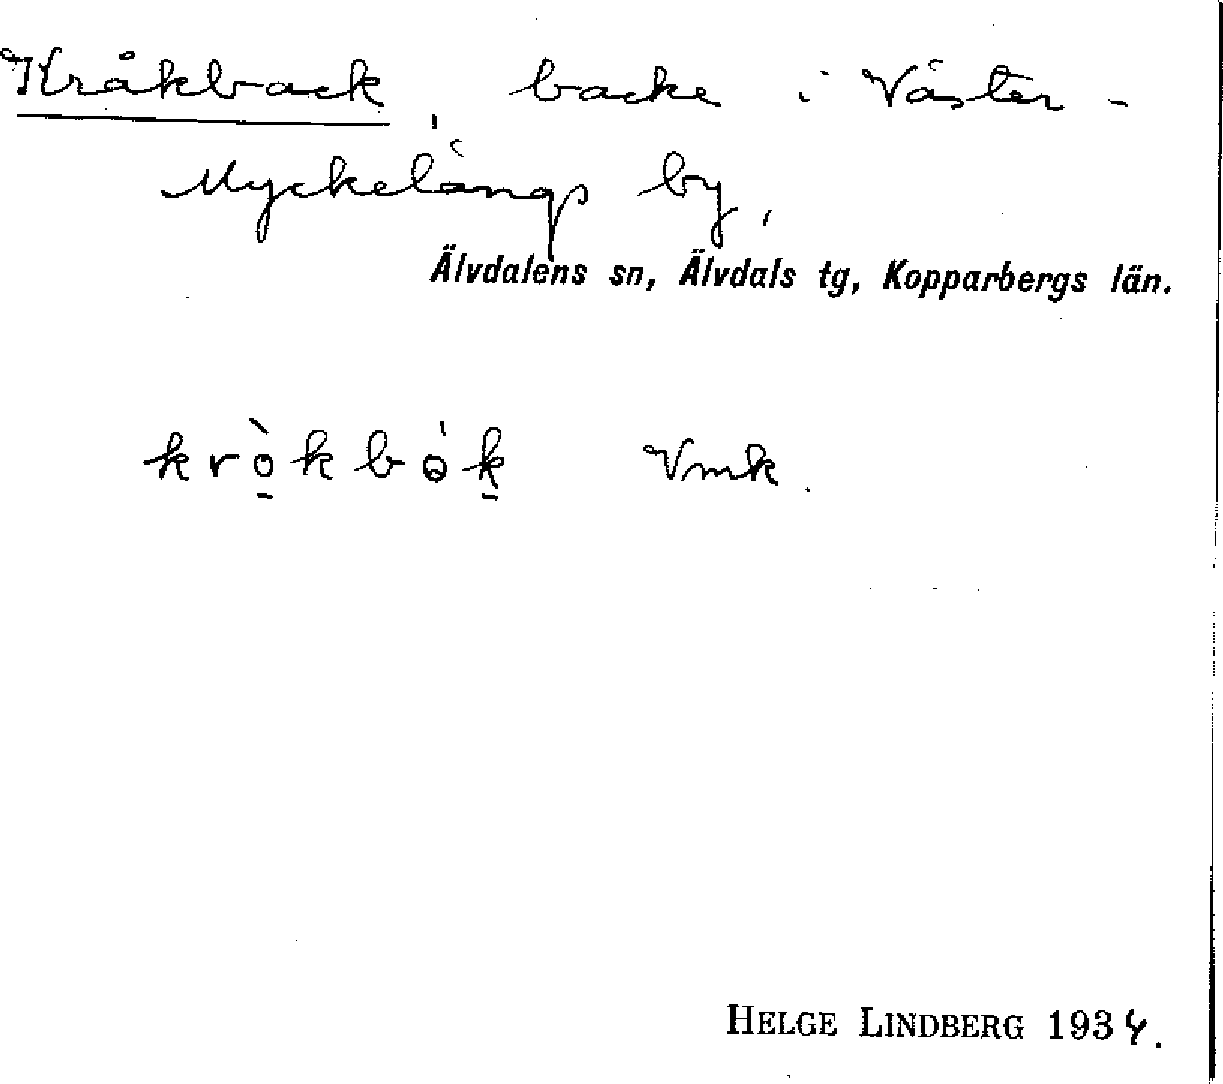 Kråkback, backe i Väster-
Myckelängs by,
Älvdalens sn, Älvdals tg, Kopparbergs län.
kròkbák Vmk.
HELGE LINDBERG 1934.